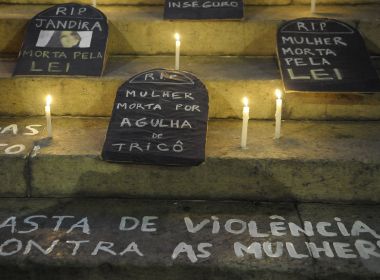 RIP
JANDIRA
MORTA PELA
LEI
INSEGURO
RIP
MULHER
MORTA PELA
LEI
RIP
MULHER
MORTA POR
AGULHA
DE
TRICÔ
ASTA DE VIOLÊNCIA
ONTRA AS MULHERE